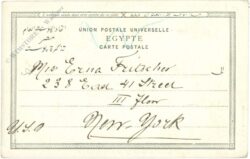 UNION POSTALE UNIVERSELLE
EGYPTE
CARTE POSTALE
Miss Erna
238 East 41 Street
III Floor
New York
U.S.A